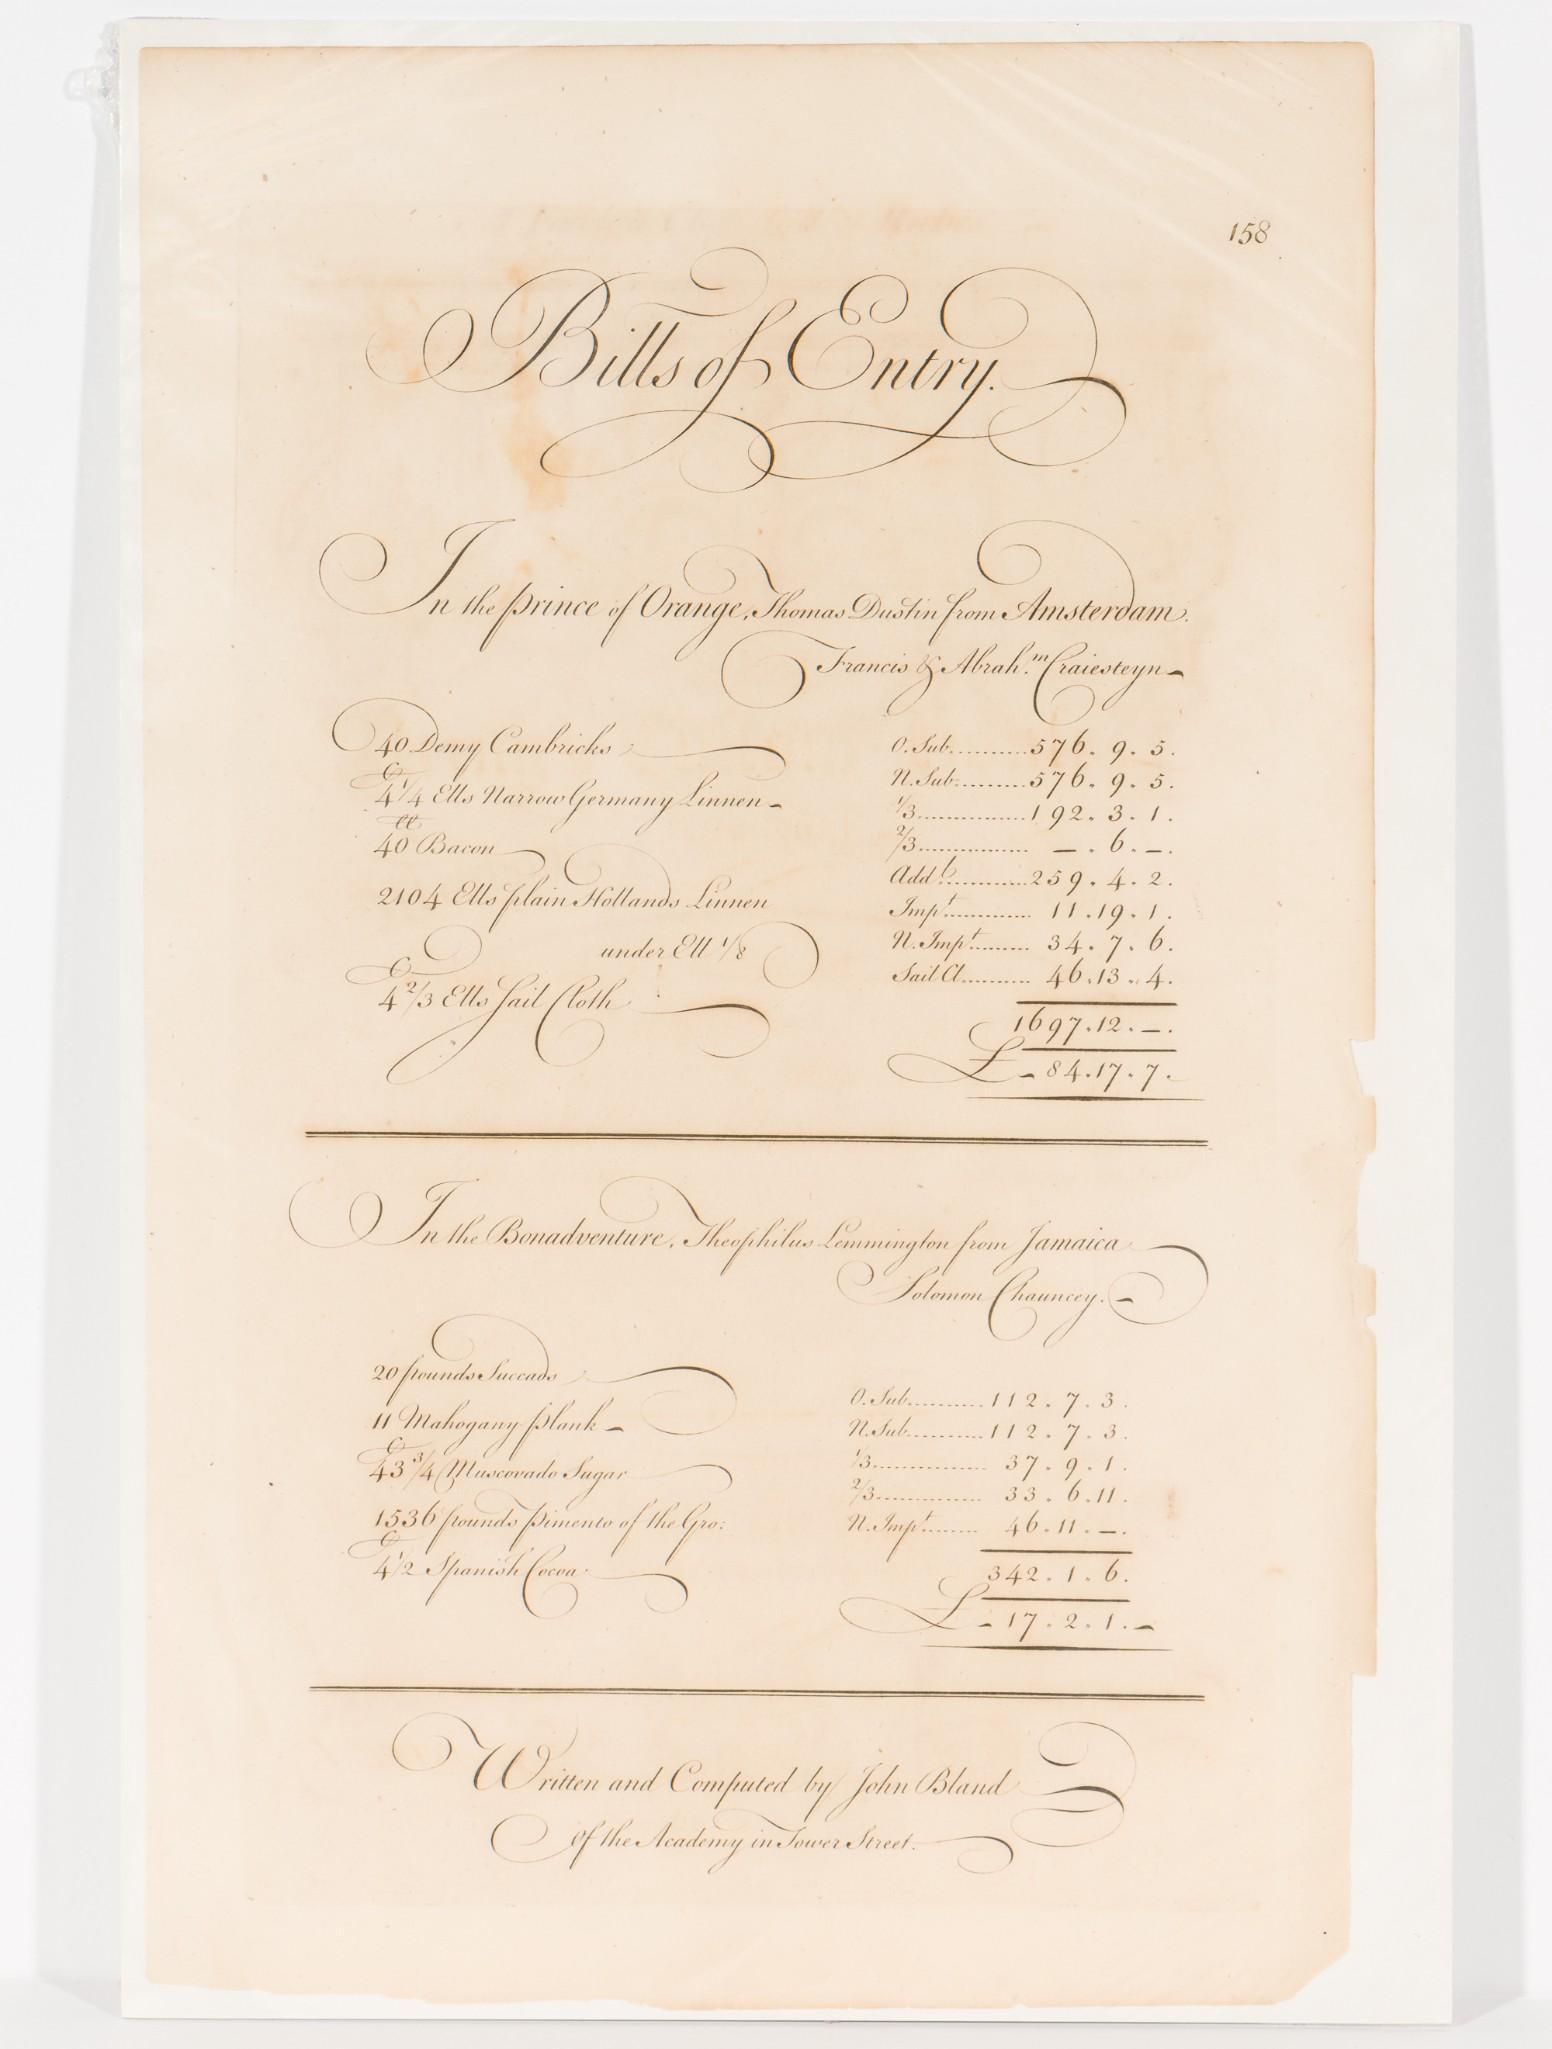 158
Bills of Entry.
In the Prince of Orange, Thomas Dustin from Amsterdam.
Francis & Abrah.m Craiesteyn
40 Demy Cambricks
C
4 1/4 Ells Narrow Germany Linnen
40 Bacon
2104 Ells plain Hollands Linnen
under Ell 1/8
C
4 2/3 Ells Sail Cloth
O. Sub..........576. 9. 5.
N. Sub.........576. 9. 5.
1/3...............192. 3. 1.
2/3............... —. 6. —.
Add.l...........259. 4. 2.
Imp.t............ 11. 19. 1.
N. Imp.t......... 34. 7. 6.
Sail Cl.......... 46. 13. 4.
1697. 12. —.
£ - 84. 17. 7.
In the Bonadventure, Theophilus Lemmington from Jamaica
Solomon Chauncey. -
20 pounds Succads
11 Mahogany Plank -
C
43 3/4 Muscovado Sugar
1536 pounds Pimento of the Gro:
C
4 1/2 Spanish Cocoa
O. Sub..........112. 7. 3.
N. Sub..........112. 7. 3.
1/3............... 37. 9. 1.
2/3.............. 33. 6. 11.
N. Imp.t....... 46. 11. —.
342. 1. 6.
£ - 17. 2. 1. -
Written and Computed by John Bland
of the Academy in Tower Street.